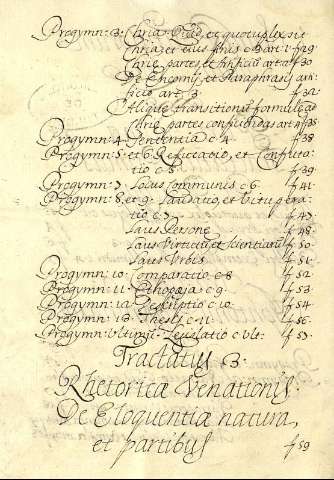 Progymn: 3. Chria Quid et quotuplex sit
Chria, et eius finis c 3 art 1. f 29
Chriæ partes et artificium art 2 f 30
De Encomijs, et Paraphrasis arti-
ficio art 3. f 32
Aliquæ transitionum formulæ ad
Chriæ partes conficiendas art 4 f 35
Progymn: 4 Sententia c 4. f 38
Progymn: 5 et 6 Refutatio, et Confirma-
tio c 5. f 39
Progymn: 7. Locus Communis c 6. f 41
Progymn: 8 et 9. Laudatio, et Vitupera-
tio c 7. f 43
Laus Personæ f 48
Laus Virtutis et scientiarum f 50
Laus Urbis f 51
Progymn: 10 Comparatio c 8 f 52
Progymn: 11. Ethopœja c 9. f 53
Progymn: 12 Descriptio c 10. f 54
Progymn: 13. Thesis c 11. f 56
Progymn: Ultimũ: Legislatio c ult: f 57
Tractatus 3.
Rhetoricæ Venationis.
De Eloquentiæ natura,
et partibus f 59